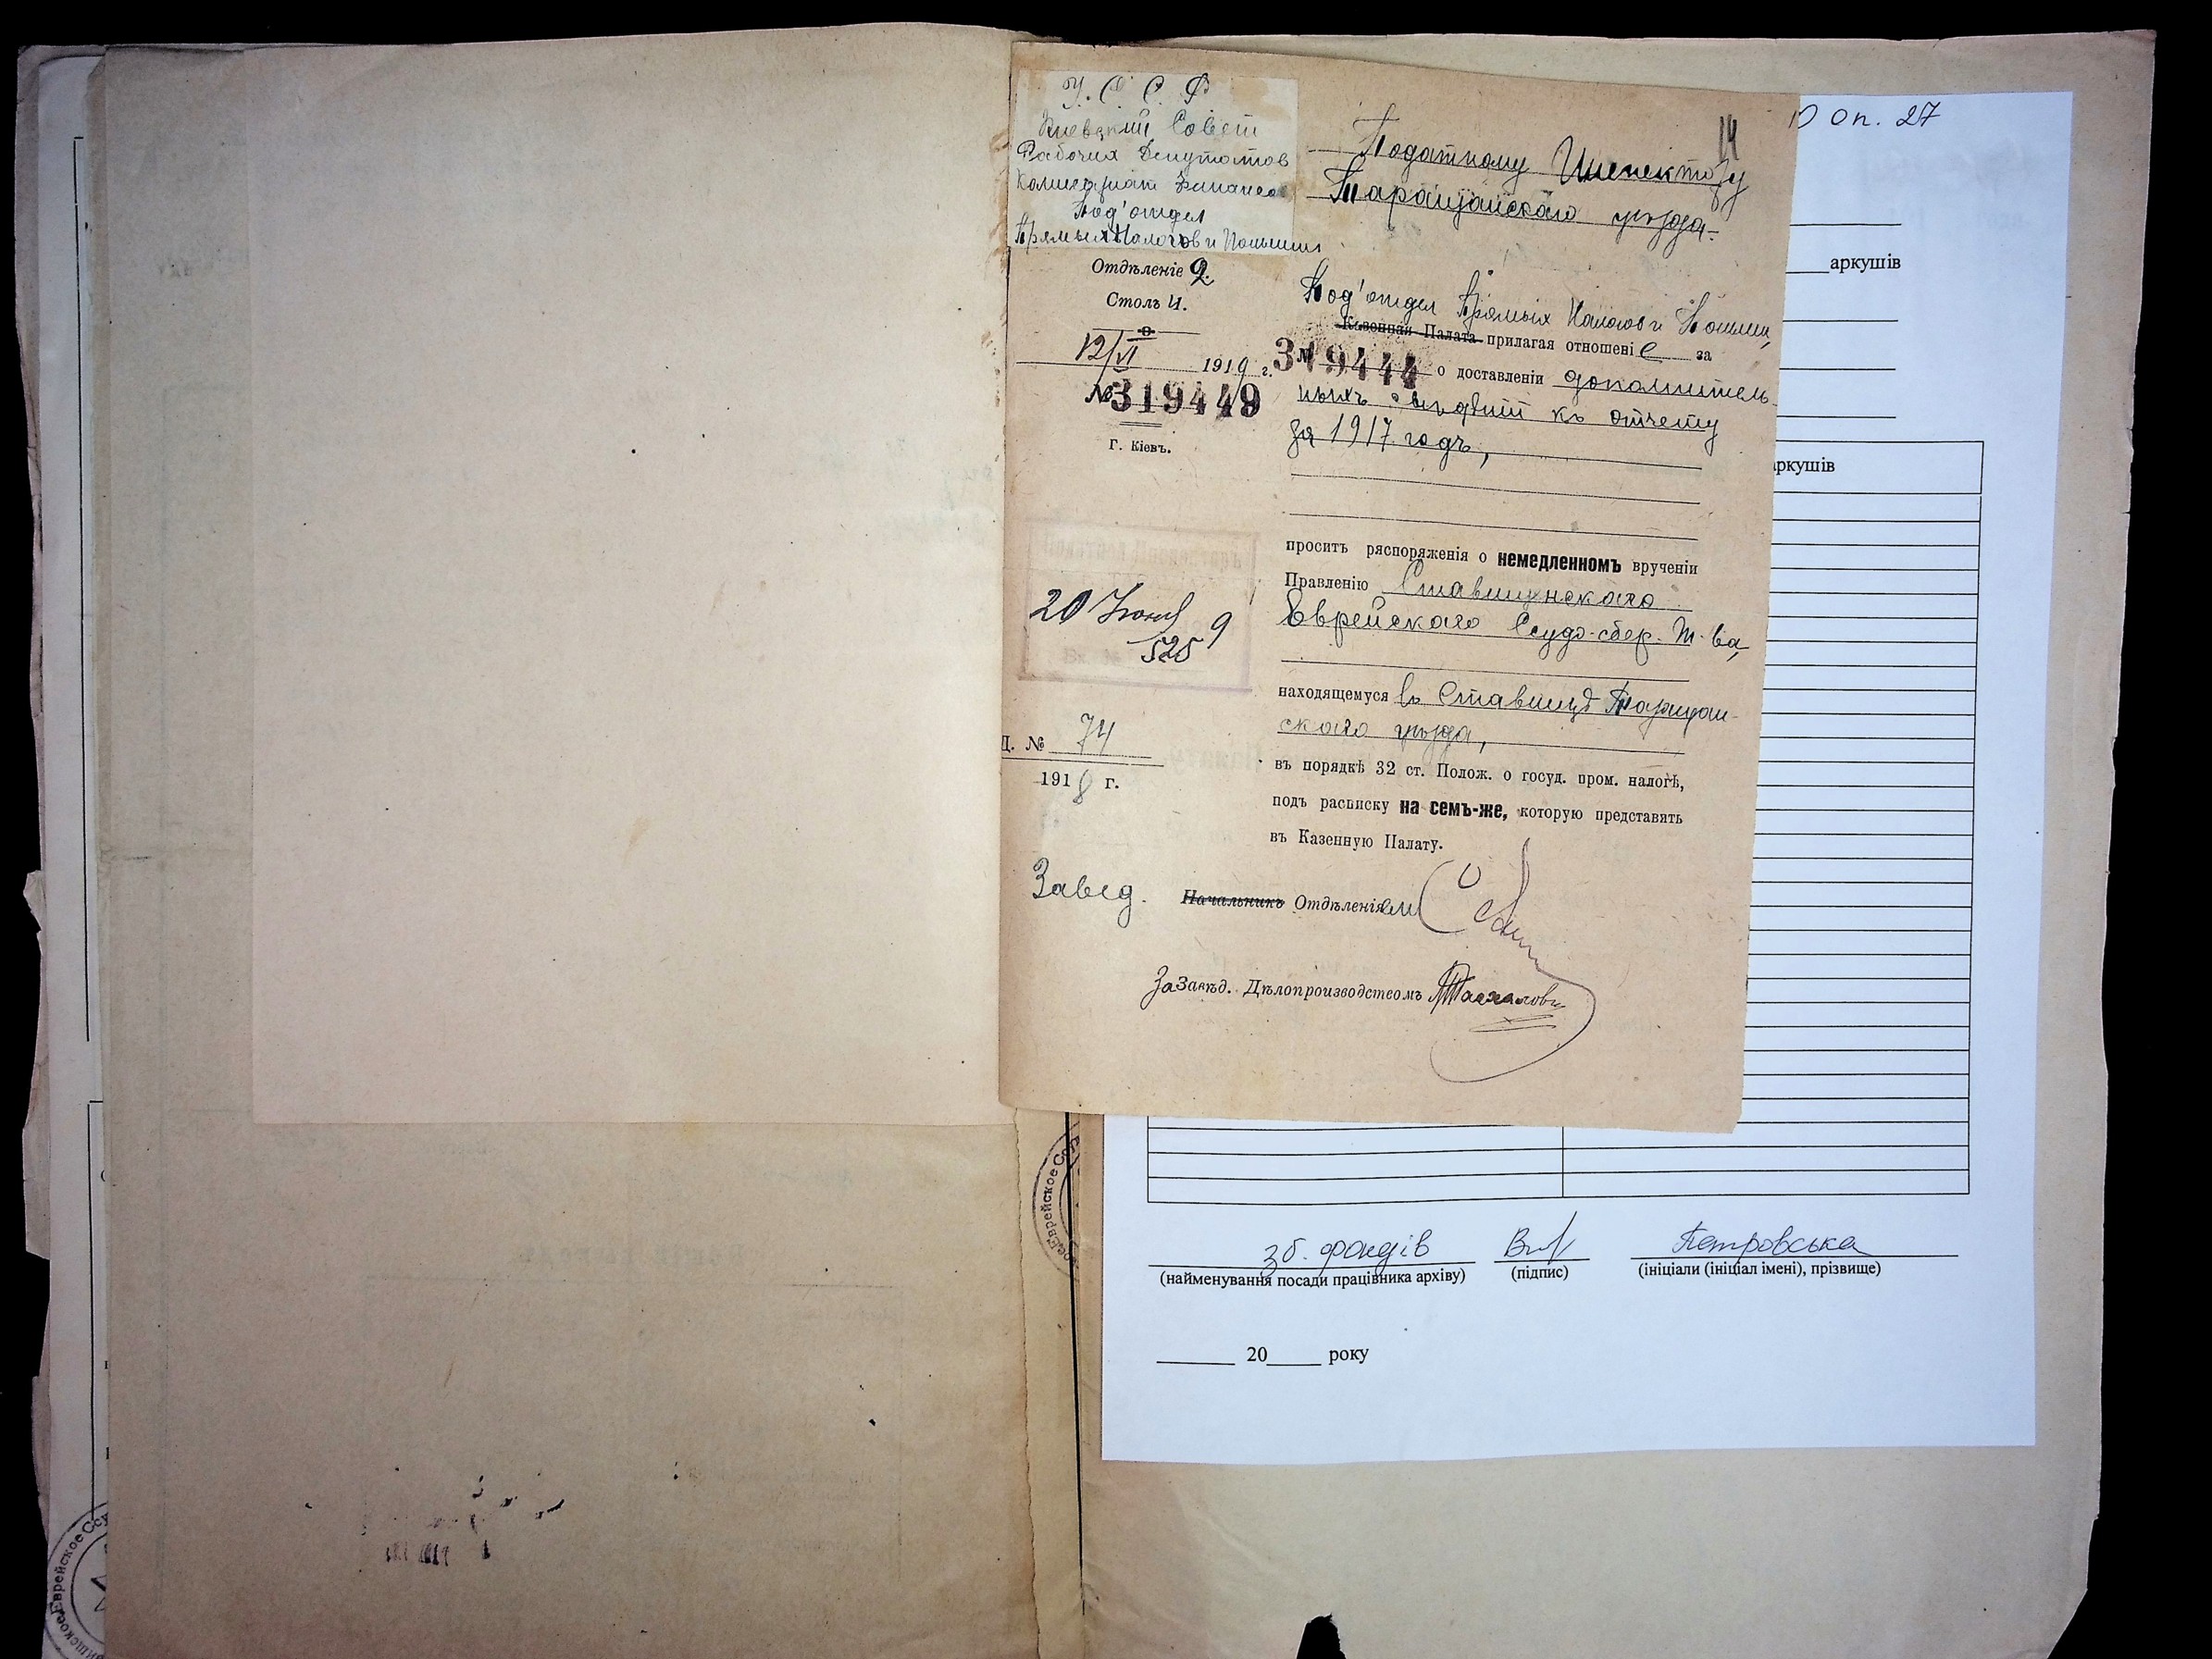 У. С. С. Р.
Киевский Совет
Рабочих Депутатов
Комиссариат Финансов
Под'отдел
Прямых Налогов и Пошлин
Отдѣленіе 2.
Столъ 4.
12/VI 1919 г.
№ 319449
Г. Кіевъ.
20 Июня 9
525
Д. № 74
1918 г.
14
Податному Инспектору
Таращанскаго уѣзда.
Под'отдел Прямых Налогов и Пошлин,
Казенная Палата прилагая отношеніе за
№ 319444 о доставленіи дополнитель-
ныхъ свѣдѣній къ отчету
за 1917 годъ,
проситъ ряспоряженія о немедленномъ врученіи
Правленію Ставищнскаго
Еврейскаго Ссудо-сбер. Т-ва,
находящемуся въ Ставищѣ Таращан-
скаго уѣзда,
въ порядкѣ 32 ст. Полож. о госуд. пром. налогѣ,
подъ расписку на семъ-же, которую представить
въ Казенную Палату.
Завед. Начальникъ Отдѣленіяем
За Завѣд. Дѣлопроизводствомъ
оп. 27
аркушів
аркушів
зб. фондів Петровська
(найменування посади працівника архіву) (підпис) (ініціали (ініціал імені), прізвище)
20 року
Еврейское
Еврейское